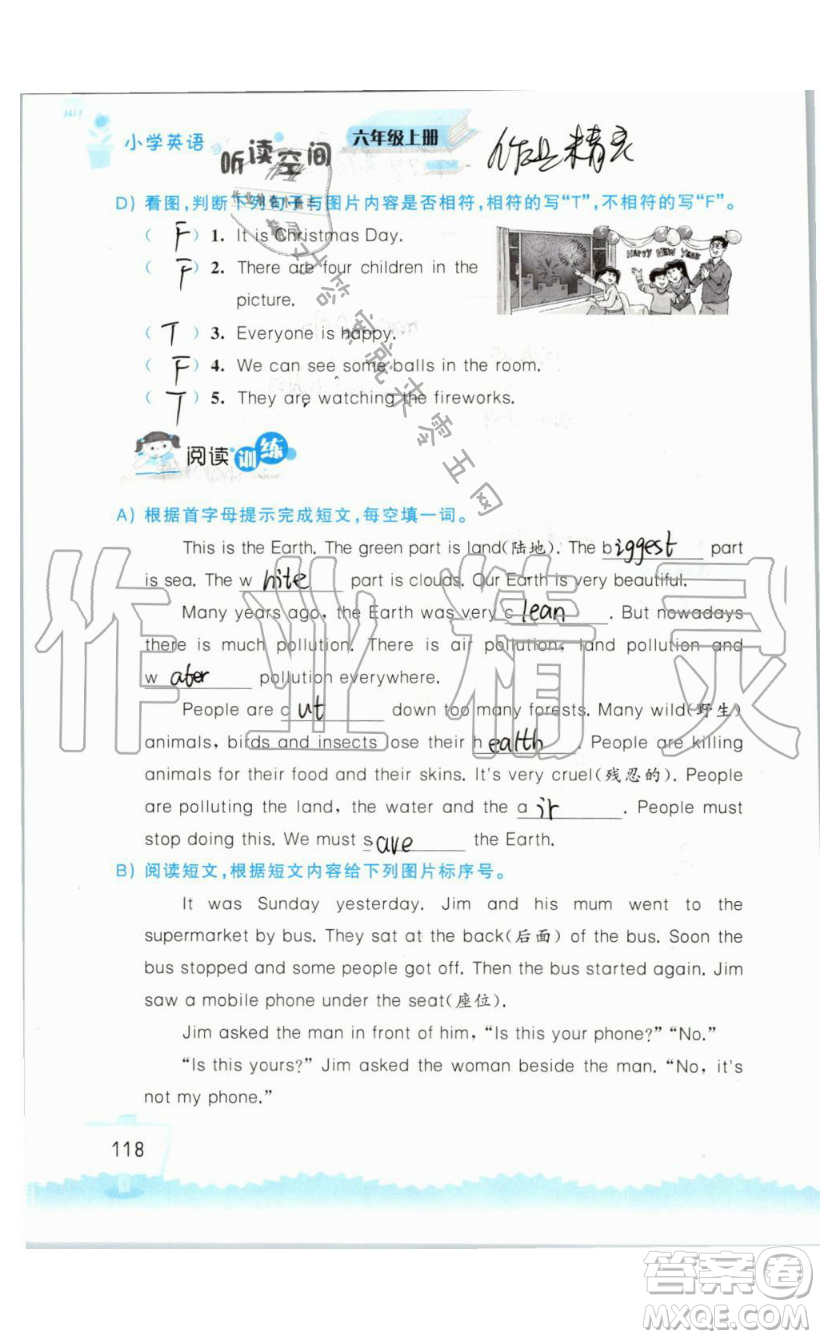 Hi!
小学英语
听读空间
六年级上册
作业精灵
D) 看图,判断下列句子与图片内容是否相符,相符的写“T”,不相符的写“F”。
HAPPY NEW YEAR
( F ) 1. It is Christmas Day.
( F ) 2. There are four children in the
picture.
( T ) 3. Everyone is happy.
( F ) 4. We can see some balls in the room.
( T ) 5. They are watching the fireworks.
找答案就来零五网
阅读训练
A) 根据首字母提示完成短文,每空填一词。
This is the Earth. The green part is land(陆地). The biggest part
is sea. The white part is clouds. Our Earth is very beautiful.
Many years ago, the Earth was very clean. But nowadays
there is much pollution. There is air pollution, land pollution and
water pollution everywhere.
People are cut down too many forests. Many wild(野生)
animals, birds and insects lose their health. People are killing
animals for their food and their skins. It's very cruel(残忍的). People
are polluting the land, the water and the air. People must
stop doing this. We must save the Earth.
作业精灵
B) 阅读短文,根据短文内容给下列图片标序号。
It was Sunday yesterday. Jim and his mum went to the
supermarket by bus. They sat at the back(后面) of the bus. Soon the
bus stopped and some people got off. Then the bus started again. Jim
saw a mobile phone under the seat(座位).
Jim asked the man in front of him, “Is this your phone?” “No.”
“Is this yours?” Jim asked the woman beside the man. “No, it's
not my phone.”
118
答案圈
MXQE.COM